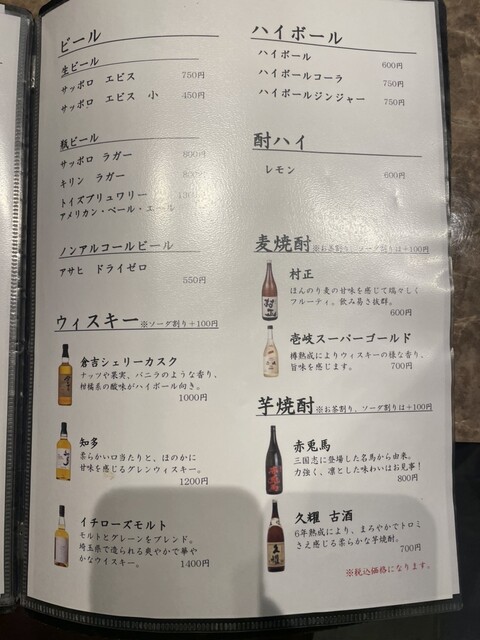 ビール
生ビール
サッポロ エビス 750円
サッポロ エビス 小 450円
瓶ビール
サッポロ ラガー 800円
キリン ラガー 800円
トイズブリュワリー
アメリカン・ペール・エール
ノンアルコールビール
アサヒ ドライゼロ
550円
ウィスキー ※ソーダ割り+100円
倉吉シェリーカスク
ナッツや果実、バニラのような香り、
柑橘系の酸味がハイボール向き。
1000円
知多
柔らかい口当たりと、ほのかに
甘味を感じるグレンウィスキー。
1200円
イチローズモルト
モルトとグレーンをブレンド。
埼玉県で造られる爽やかで華や
かなウイスキー。 1400円
ハイボール
ハイボール 600円
ハイボールコーラ 750円
ハイボールジンジャー 750円
酎ハイ
レモン 600円
麦焼酎 ※お茶割り、ソーダ割りは+100円
村正
ほんのり麦の甘味を感じて瑞々しく
フルーティ。飲み易さ抜群。
600円
壱岐スーパーゴールド
樽熟成によりウィスキーの様な香り、
旨味を感じます。 700円
芋焼酎 ※お茶割り、ソーダ割りは+100円
赤兎馬
三国志に登場した名馬から由来。
力強く、凛とした味わいはお見事！
800円
久耀 古酒
6年熟成により、まろやかでトロミ
さえ感じる柔らかな芋焼酎。
700円
※税込価格になります。